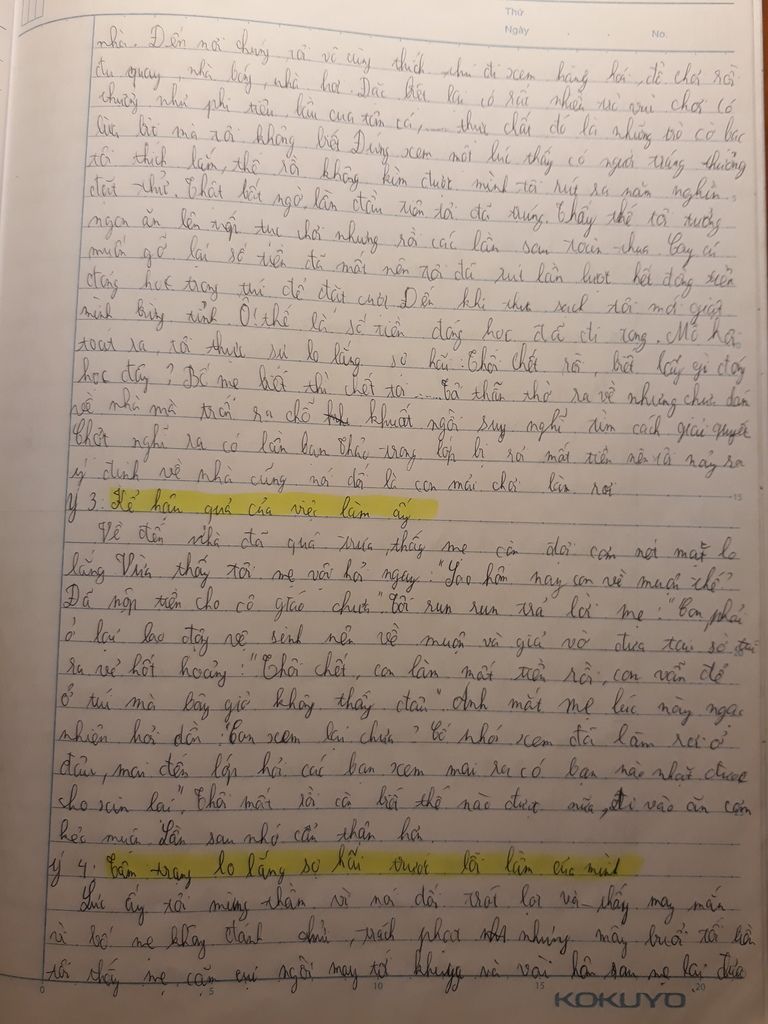 Thứ
Ngày No.
nhà. Đến nơi chúng tôi vô cùng thích thú đi xem hàng hoá, đồ chơi rồi
đu quay, nhà bóng, nhà hơi. Đặc biệt lại có rất nhiều trò vui chơi có
thưởng như phi tiêu, bầu cua tôm cá,.... thực chất đó là những trò cờ bạc
bịp mà tôi không biết Đứng xem một lúc thấy có người trúng thưởng
tôi thích lắm, thế rồi không kìm được mình tôi rút ra năm nghìn
đặt thử. Thật bất ngờ, lần đầu tiên tôi đã trúng. Thấy thế tôi tưởng
ngon ăn lên tiếp tục chơi nhưng rồi các lần sau toàn thua. Cay cú
muốn gỡ lại số tiền đã mất nên tôi đã rút lần lượt hết đồng tiền
đóng học trong túi để đặt cược Đến khi thua sạch tôi mới giật
mình bừng tỉnh Ô! thế là số tiền đóng học đã đi tong. Mồ hôi
toát ra, tôi thực sự lo lắng sợ hãi: Thôi chết rồi, biết lấy gì đóng
học đây? Bố mẹ biết thì chết tôi .... Tôi thẫn thờ ra về nhưng chưa dám
về nhà mà trốn ra chỗ khuất ngồi suy nghĩ tìm cách giải quyết
Chợt nghĩ ra có lần bạn Thảo trong lớp bị rơi mất tiền nên tôi nảy ra
ý định về nhà cũng nói dối là con mải chơi làm rơi
ý 3: Kể hậu quả của việc làm ấy
Về đến nhà đã quá trưa, thấy mẹ còn đợi cơm nét mặt lo
lắng Vừa thấy tôi mẹ vội hỏi ngay: "Sao hôm nay con về muộn thế?
Đã nộp tiền cho cô giáo chưa" Tôi run run trả lời mẹ: "Con phải
ở lại lao động vệ sinh nên về muộn và giả vờ đưa tay sờ túi
ra vẻ hốt hoảng: "Thôi chết, con làm mất tiền rồi, con vẫn để
ở túi mà bây giờ không thấy đâu". Ánh mắt mẹ lúc này ngạc
nhiên hỏi dồn: Con xem lại chưa? Cố nhớ xem đã làm rơi ở
đâu, mai đến lớp hỏi các bạn xem may ra có bạn nào nhặt được
cho xin lại". Thôi mất rồi còn biết thế nào được nữa, đi vào ăn cơm
kẻo muộn. Lần sau nhớ cẩn thận hơn.
ý 4: Tâm trạng lo lắng sợ hãi trước lỗi lầm của mình
Lúc ấy tôi mừng thầm vì nói dối trót lọt và thấy may mắn
vì bố mẹ không đánh chửi, trách phạt nhưng mấy buổi tối liền
tôi thấy mẹ cặm cụi ngồi may tới khuya và vài hôm sau mẹ lại đưa
KOKUYO